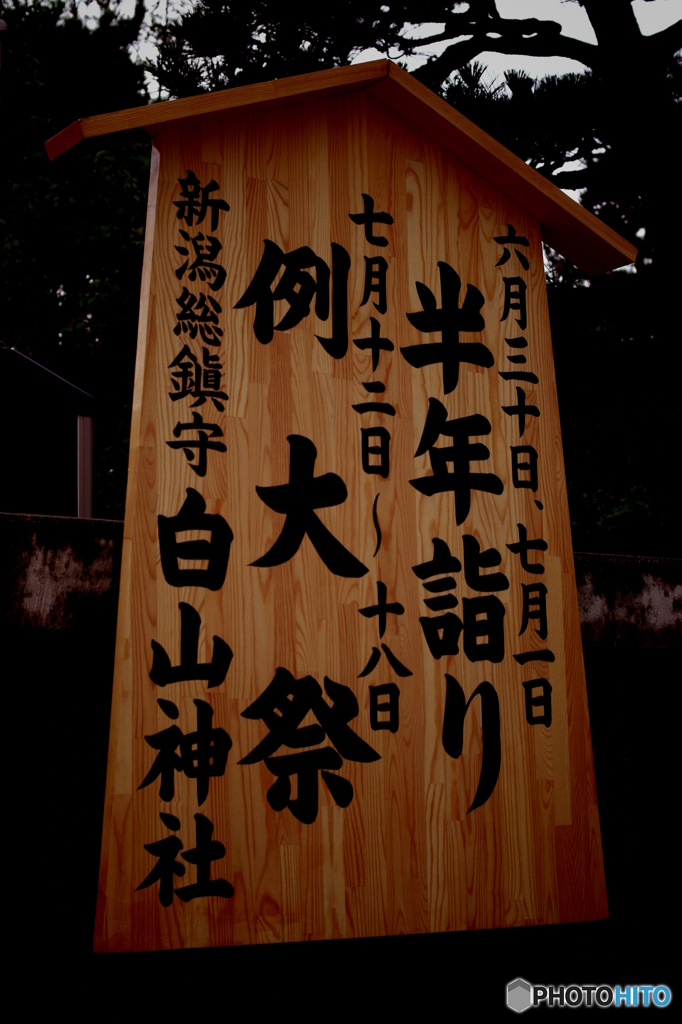 六月三十日、七月一日
半年詣り
七月十二日～十八日
例大祭
新潟総鎮守 白山神社
PHOTOHITO